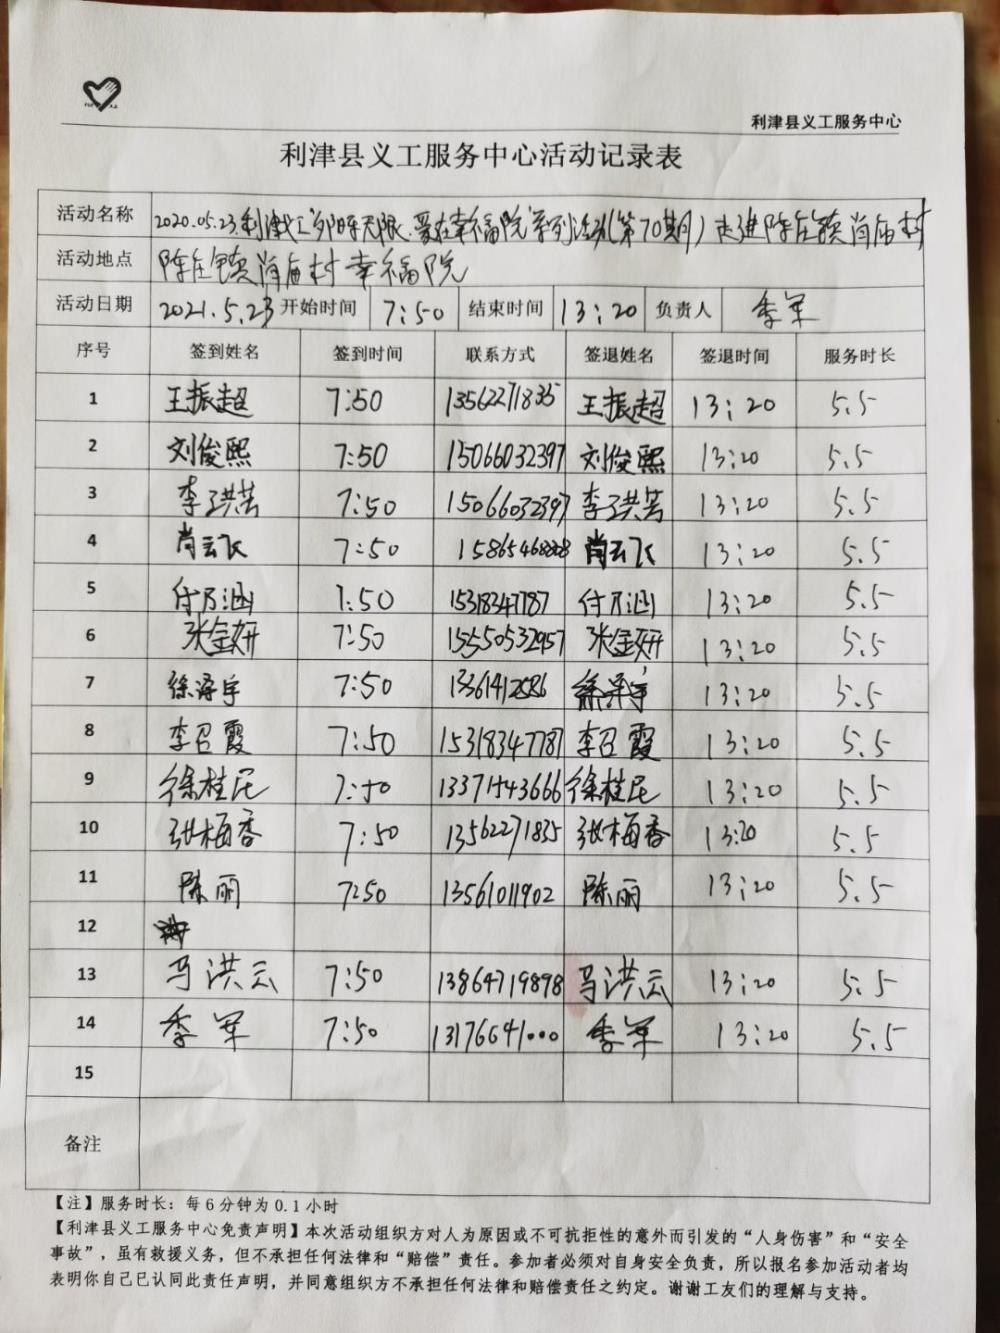 利津县义工服务中心
利津县义工服务中心活动记录表
活动名称 2020.05.23.利津义工"夕阳无限·爱在幸福院"系列活动(第70期)走进陈庄镇肖庙村
活动地点 陈庄镇肖庙村幸福院
活动日期 2021.5.23 开始时间 7:50 结束时间 13:20 负责人 季军
序号 签到姓名 签到时间 联系方式 签退姓名 签退时间 服务时长
1 王振超 7:50 13562271835 王振超 13:20 5.5
2 刘俊熙 7:50 15066032397 刘俊熙 13:20 5.5
3 李洪芳 7:50 15066032397 李洪芳 13:20 5.5
4 肖云飞 7:50 肖云飞 13:20 5.5
5 付乃涵 7:50 15318347787 付乃涵 13:20 5.5
6 张金妍 7:50 15550532957 张金妍 13:20 5.5
7 徐泽宇 7:50 徐泽宇 13:20 5.5
8 李召霞 7:50 15318347787 李召霞 13:20 5.5
9 徐桂民 7:50 13371543666 徐桂民 13:20 5.5
10 张梅香 7:50 13562271835 张梅香 13:20 5.5
11 陈丽 7:50 13561011902 陈丽 13:20 5.5
12
13 马洪云 7:50 13864719898 马洪云 13:20 5.5
14 季军 7:50 13176641000 季军 13:20 5.5
15
备注
【注】服务时长：每6分钟为0.1小时
【利津县义工服务中心免责声明】本次活动组织方对人为原因或不可抗拒性的意外而引发的“人身伤害”和“安全
事故”，虽有救援义务，但不承担任何法律和“赔偿”责任。参加者必须对自身安全负责，所以报名参加活动者均
表明你自己已认同此责任声明，并同意组织方不承担任何法律和赔偿责任之约定。谢谢工友们的理解与支持。